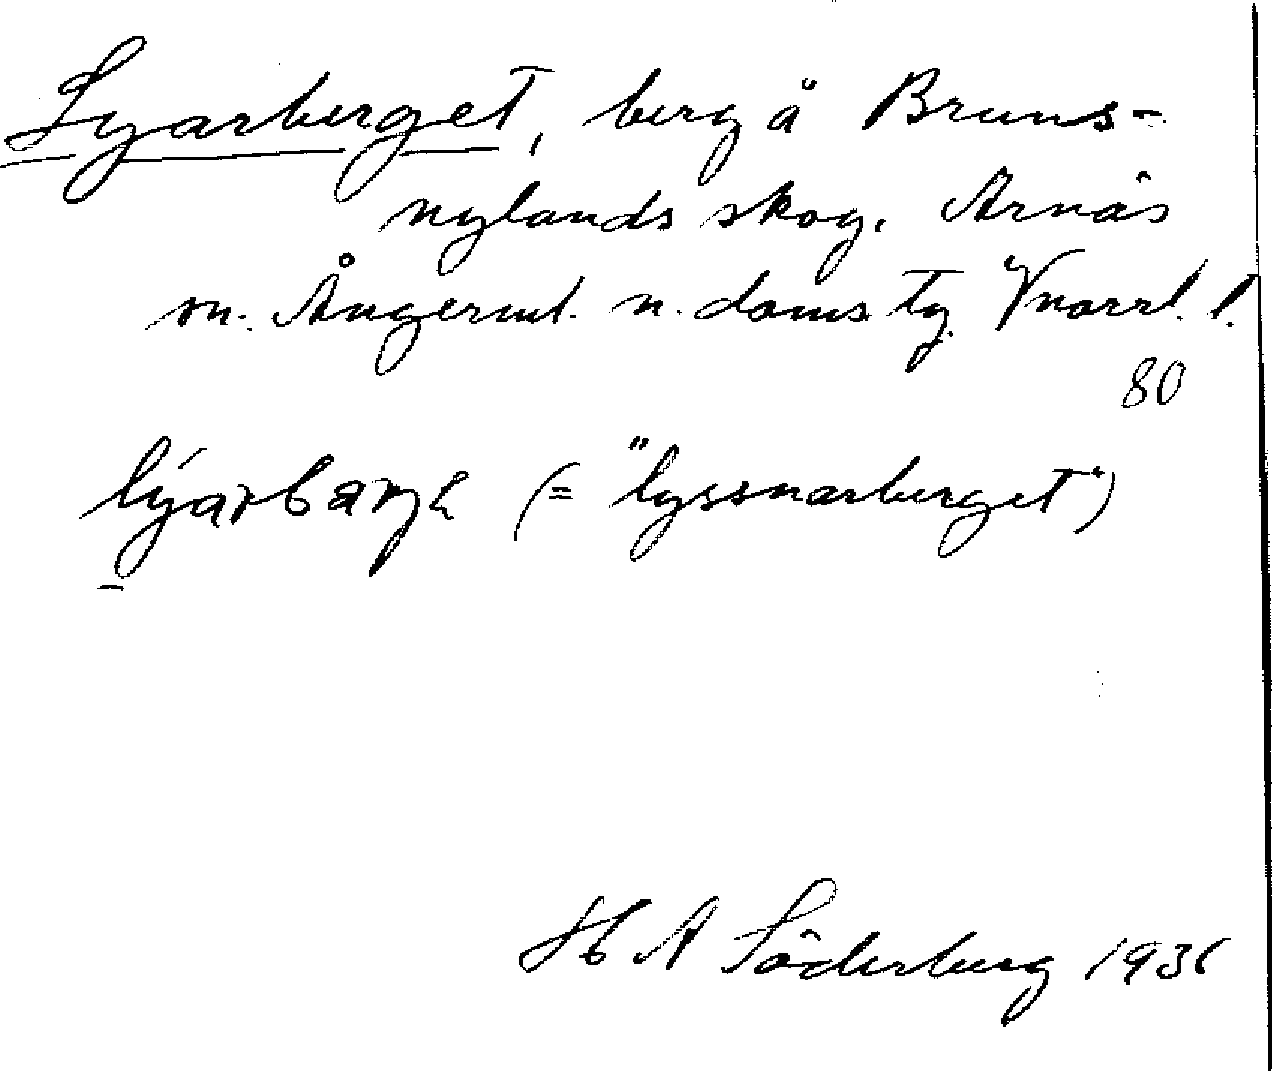 Lyarberget, berg å Bruns-
nylands skog. Arnäs
sn. Ångerml. n. doms tg Vnorrl. l.
80
lýarbärgə (= "lyssnarberget")
H A Söderberg 1931